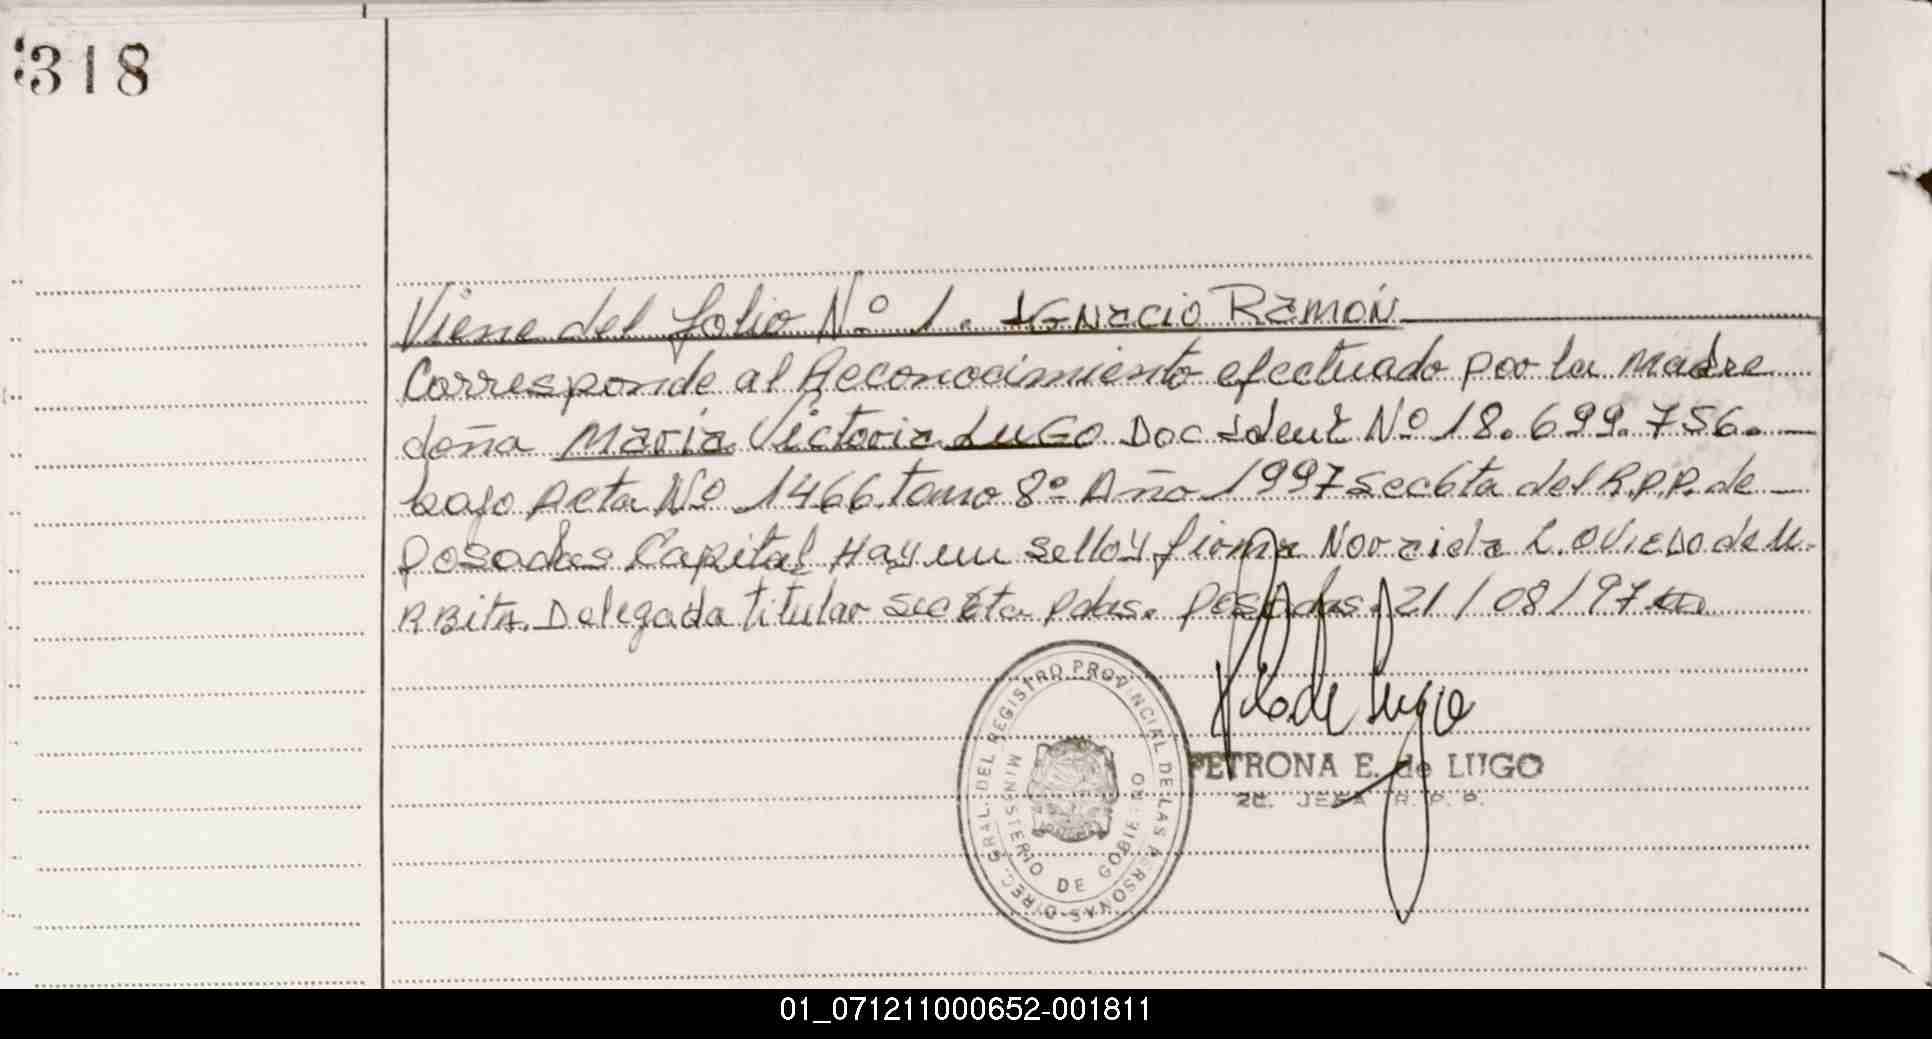 318
Viene del folio Nº 1. IGNACIO RAMÓN
Corresponde al Reconocimiento efectuado por la madre
doña María Victoria LUGO Doc Ident Nº 18.699.756.
bajo Acta Nº 1466 tomo 8º Año 1997 Sec 6ta del R.P.P. de
Posadas Capital Hay un sello y firma Noraida L. OVIEDO de U.
RBITA. Delegada titular Sec 6ta Pdas. Posadas. 21/08/97
DIREC. GRAL. DEL REGISTRO PROVINCIAL DE LAS PERSONAS
MINISTERIO DE GOBIERNO
PETRONA E. de LUGO
2a. JEFA R. P. P.
01_071211000652-001811